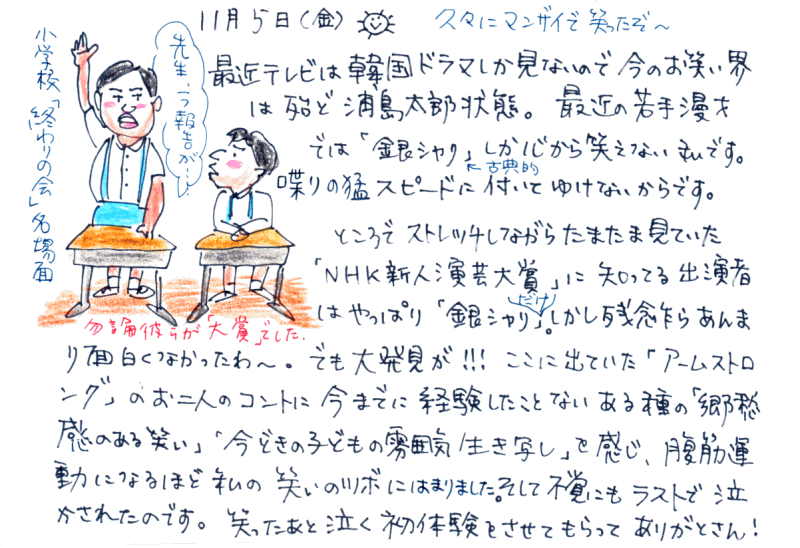 11月5日(金)
久々にマンザイで笑ったぞ～
小学校「終わりの会」名場面
先生、一つ報告が…!
最近テレビは韓国ドラマしか見ないので今のお笑い界
は殆ど浦島太郎状態。最近の若手漫才
では「銀シャリ」しか心から笑えない私です。
←古典的
喋りの猛スピードに付いてゆけないからです。
ところでストレッチしながらたまたま見ていた
「NHK新人演芸大賞」に知ってる出演者
はやっぱり「銀シャリ」だけ。しかし残念乍らあんま
勿論彼らが「大賞」でした.
り面白くなかったわ～。でも大発見が!!!ここに出ていた「アームストロ
ング」のお二人のコントに今までに経験したことないある種の「郷愁
感のある笑い」「今どきの子どもの雰囲気生き写し」を感じ、腹筋運
動になるほど私の笑いのツボにはまりました。そして不覚にもラストで泣
かされたのです。笑ったあと泣く初体験をさせてもらってありがとさん!